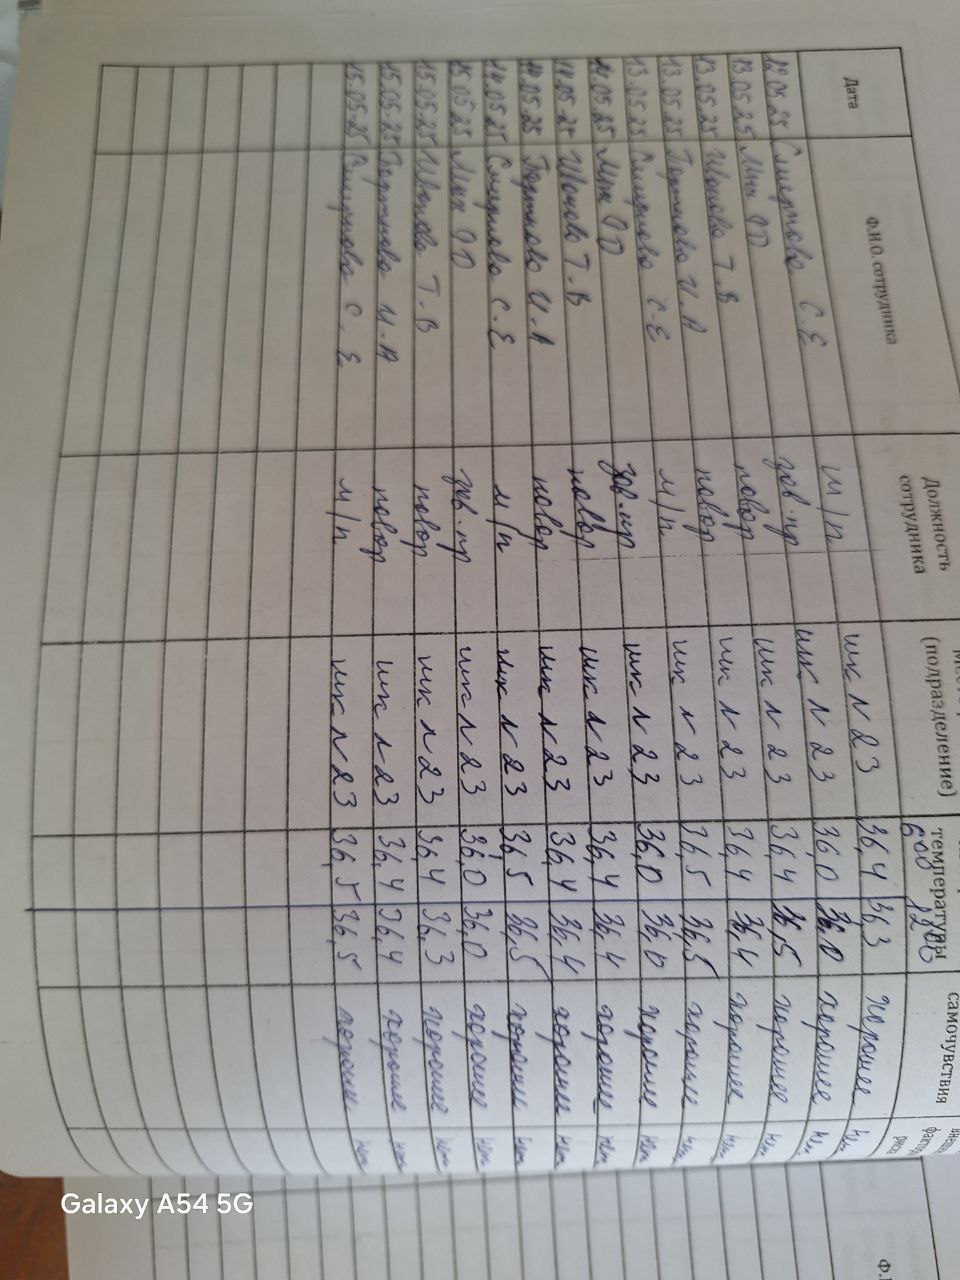 Дата Ф.И.О. сотрудника Должность сотрудника (подразделение) температуры самочувствия
600 2200
12.05.25 Смирнова С.Е м/п шк N 23 36,4 36,3 хорошее нет
13.05.25 Мин О зав.пр шк N 23 36,0 36,0 хорошее нет
13.05.25 Т.В повар шк N 23 36,4 36,5 хорошее нет
13.05.25 Портнова И.А повар шк N 23 36,4 36,4 хорошее нет
13.05.25 Смирнова С.Е м/п шк N 23 36,5 36,5 хорошее нет
14.05.25 Мин зав.пр шк N 23 36,0 36,0 хорошее нет
14.05.25 Т.В повар шк N 23 36,4 36,4 хорошее нет
14.05.25 Портнова И.А повар шк N 23 36,4 36,4 хорошее нет
14.05.25 Смирнова С.Е м/п шк N 23 36,5 36,5 хорошее нет
15.05.25 Мин зав.пр шк N 23 36,0 36,0 хорошее нет
15.05.25 Т.В повар шк N 23 36,4 36,3 хорошее нет
15.05.25 Портнова И.А повар шк N 23 36,4 36,4 хорошее нет
15.05.25 Смирнова С.Е м/п шк N 23 36,5 36,5 хорошее нет
Galaxy A54 5G